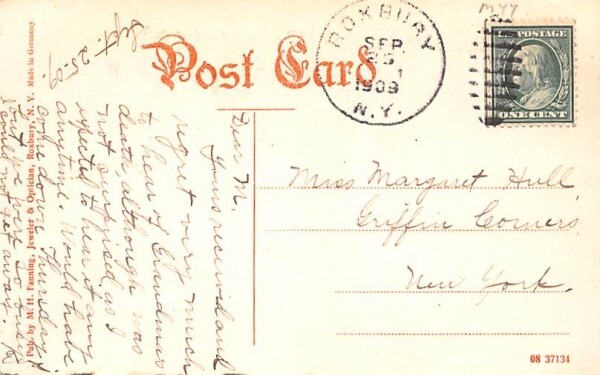 Sept. 25-'09
Post Card
ROXBURY
SEP
25
1
1909
N.Y.
U.S. POSTAGE
ONE CENT
Dear M.
Yours received and
regret very much
to hear of Grandma's
death, although was
not surprised, as I
expected to hear it any
anytime. Would have
come down Thursday
but we were so busy
I could not get away.
Miss Margaret Hull,
Griffin Corners,
New York.
Pub. by M. H. Fanning, Jeweler & Optician, Roxbury, N. Y. Made in Germany
08 37134